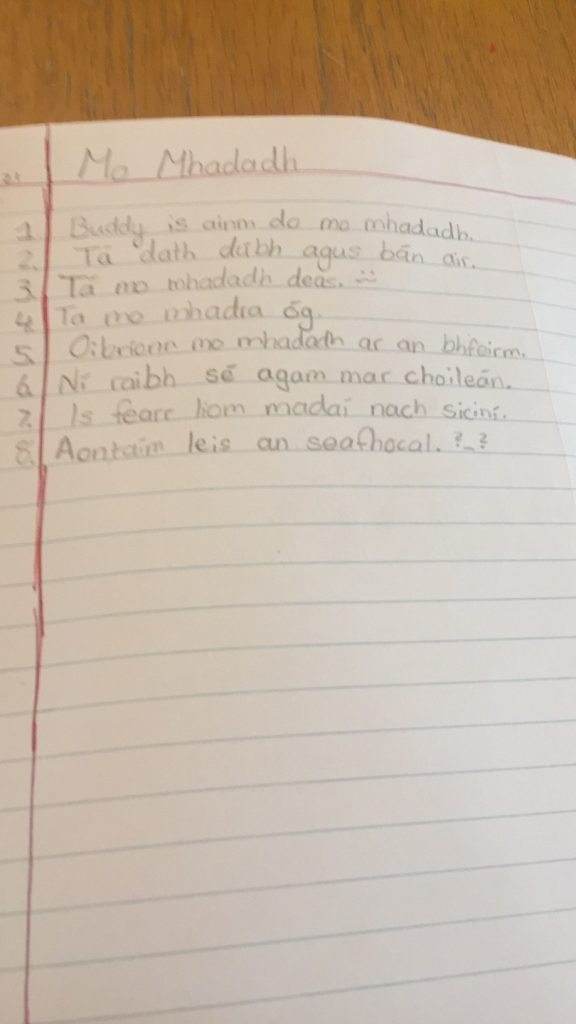 Mo Mhadadh
1. Buddy is ainm do mo mhadadh.
2. Tá dath dubh agus bán air.
3. Tá mo mhadadh deas. :)
4. Ta mo mhadra óg.
5. Oibríonn mo mhadadh ar an bhfeirm.
6. Ní raibh sé agam mar choileán.
7. Is fearr liom madaí nach sicíní.
8. Aontaím leis an seafhocal. ?_?